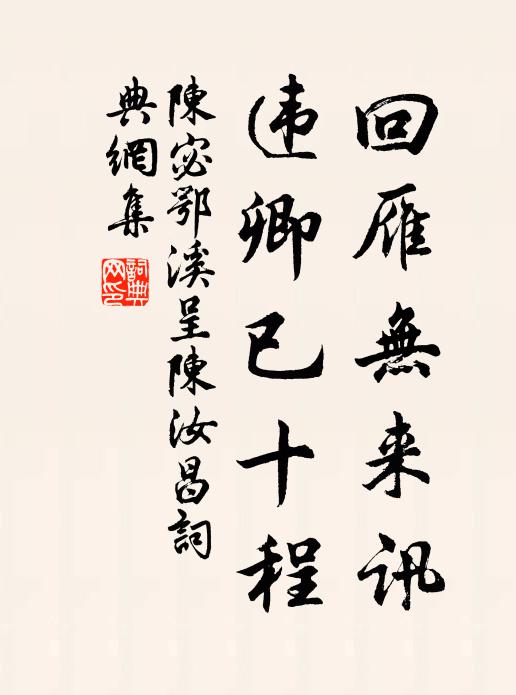 回雁無来訊
违卿已十程
陳宓鄂溪呈陳汝昌詞
典網集
詞典
网印